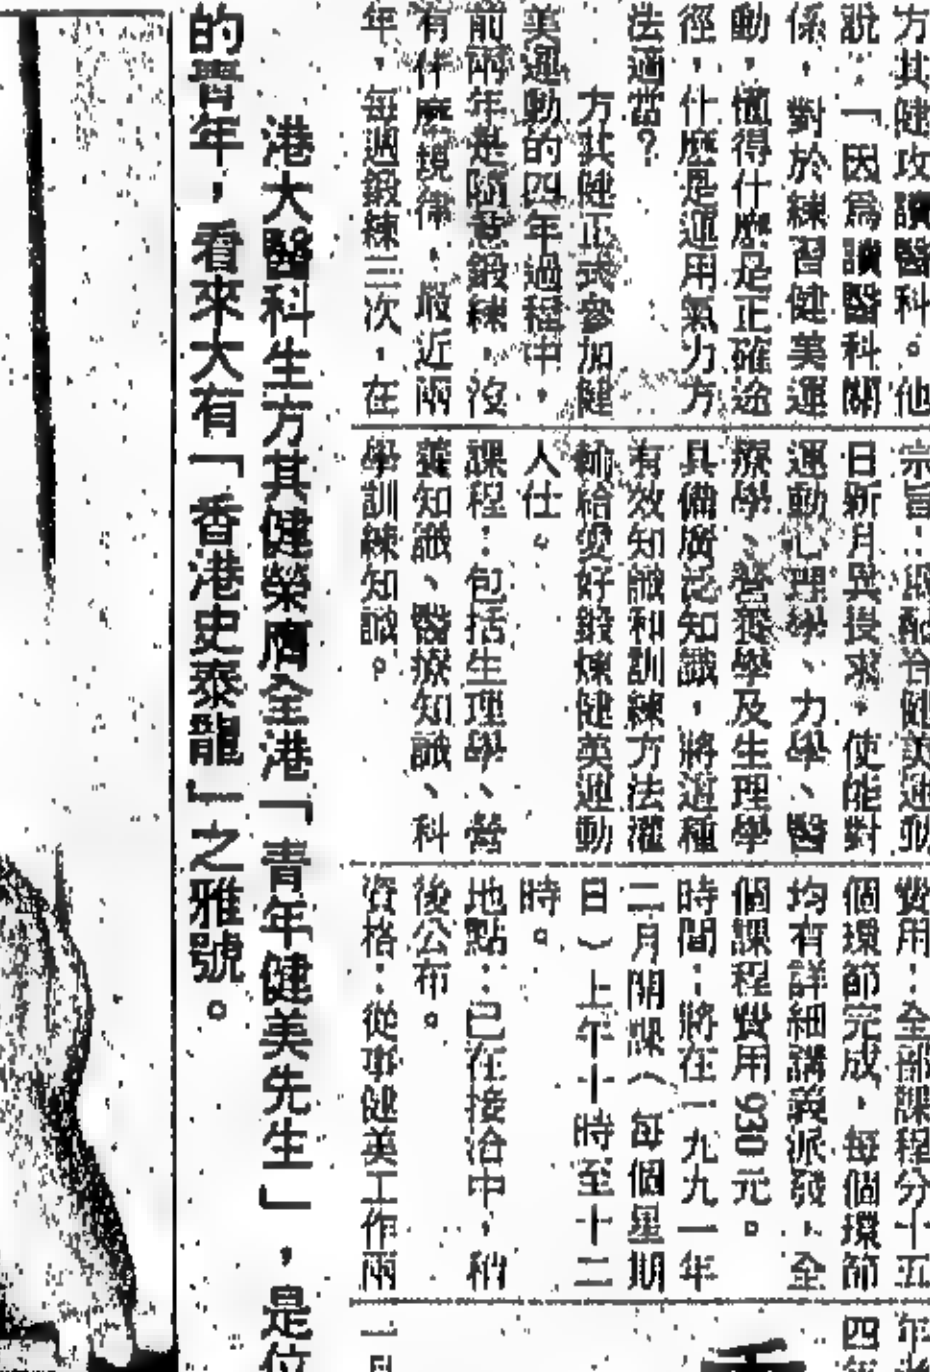 方其健攻讀醫科。他
說：「因爲讀醫科關
係，對於練習健美運
動，懂得什麼是正確途
徑，什麼是運用氣力方
法適當？
方其健正式參加健
美運動的四年過程中，
前兩年是隨意鍛練，沒
有什麼規律，最近兩
年，每週鍛練三次，在
宗旨：爲配合健美運動
日新月異要求，使能對
運動心理學、力學、醫
療學、營養學及生理學
具備廣泛知識，將這種
有效知識和訓練方法灌
輸給愛好鍛煉健美運動
人仕。
課程：包括生理學、營
養知識、醫療知識、科
學訓練知識。
費用：全部課程分十五
個環節完成，每個環節
均有詳細講義派發，全
個課程費用930元。
時間：將在一九九一年
二月開課（每個星期
日）上午十時至十二
時。
地點：已在接洽中，稍
後公布。
資格：從事健美工作兩
港大醫科生方其健榮膺全港「青年健美先生」，是位
的青年，看來大有「香港史泰龍」之雅號。